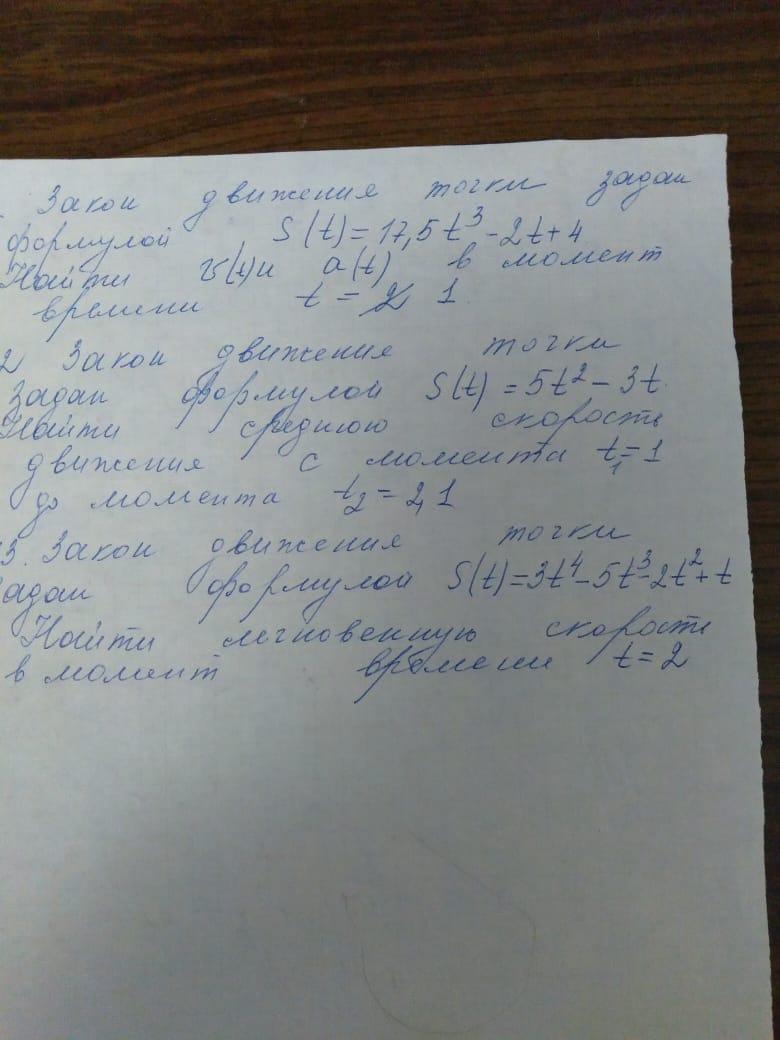 Закон движения точки задан
формулой S(t)=17,5t³-2t+4
Найти v(t)и a(t) в момент
времени t = 1
2 Закон движения точки
задан формулой S(t) = 5t² - 3t
Найти среднюю скорость
движения с момента t₁=1
до момента t₂ = 2,1
3. Закон движения точки
адан формулой S(t)=3t⁴-5t³-2t²+t
Найти мгновенную скорость
в момент времени t=2